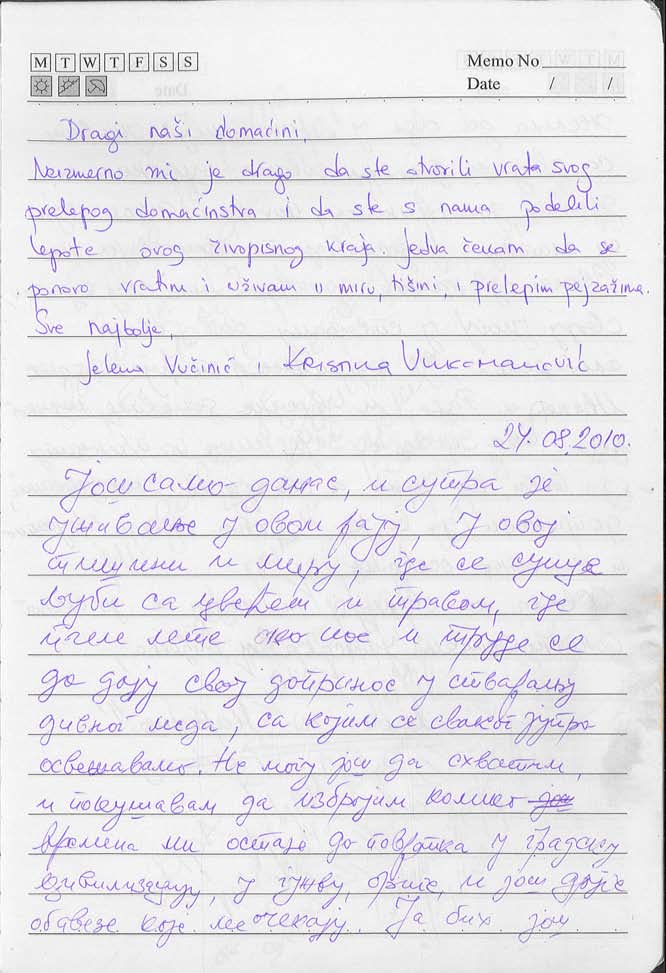 M T W T F S S
Memo No
Date / /
Dragi naši domaćini,
Neizmerno mi je drago da ste otvorili vrata svog
prelepog domaćinstva i da ste s nama podelili
lepote ovog živopisnog kraja. Jedva čekam da se
ponovo vratim i uživam u miru, tišini, i prelepim pejzažima.
Sve najbolje,
Jelena Vučinić i Kristina Vukomanović
24.08.2010.
Још само данас, и сутра је
уживање у овом рају, у овој
тишини и миру, где се сунце
љуби са цвећем и травом, где
пчеле лете око нас и труде се
да дају свој допринос у стварању
дивног меда, са којим се сваког јутра
освежавамо. Не могу још да схватим,
и покушавам да избројим колико још
времена ми остаје до повратка у градску
цивилизацију, у гужву, и још
обавезе које ме чекају. Ја бих још